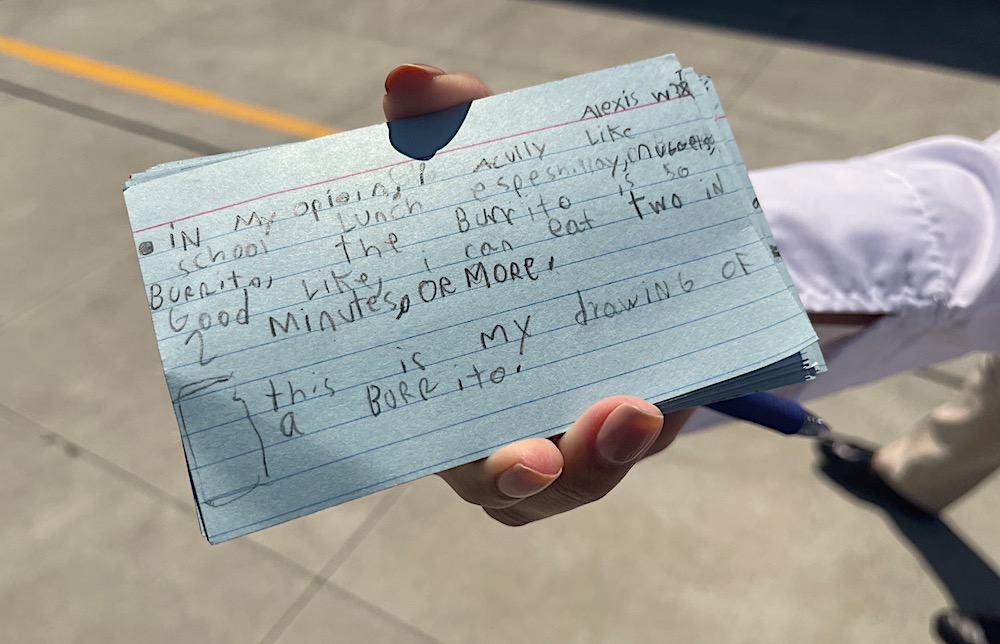 Alexis
IN My opioin, i Acully Like
school Lunch espeshillay, chNuggets,
Burrito, the Burrito is so
Good Like, i can eat two IN
2 Minutes, OR MORE.
this is my drawing OF
a BURRito.